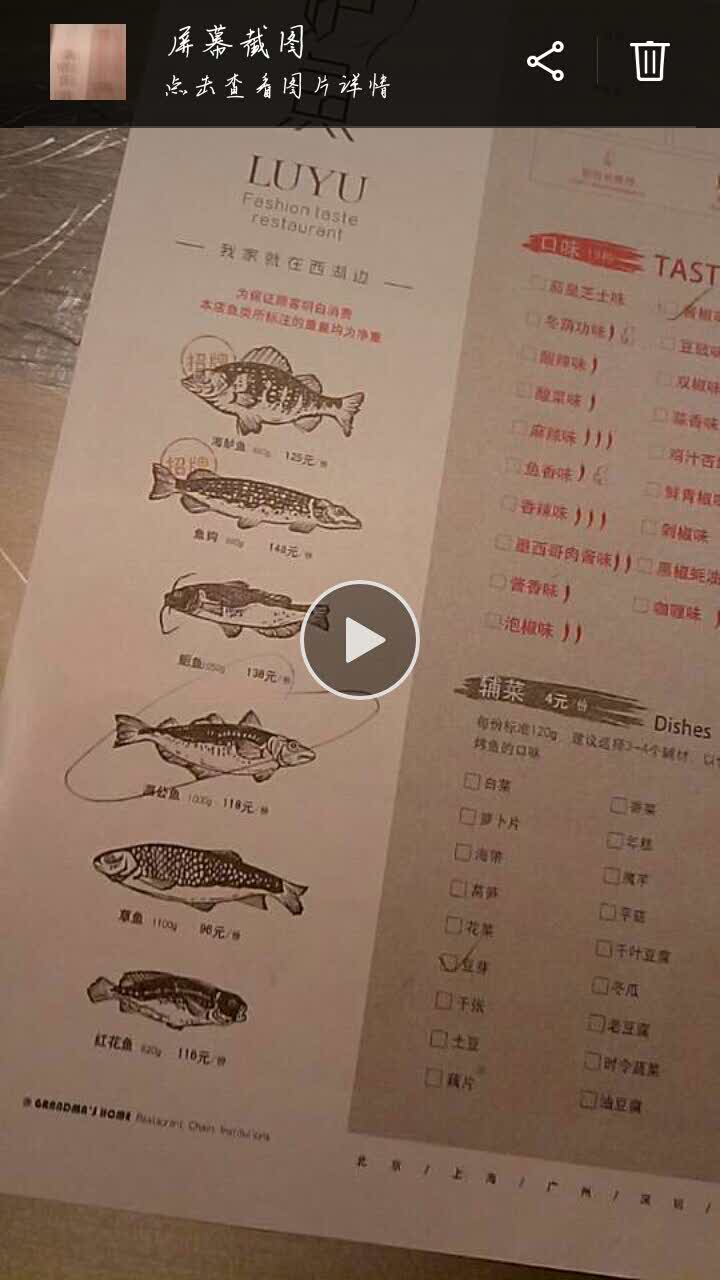 屏幕截图
点击查看图片详情
LUYU
Fashion taste
restaurant
我家就在西湖边
为保证顾客明白消费
本店鱼类所标注的重量均为净重
招牌
海鲈鱼 125元/份
招牌
鱼钩 148元/份
鮰鱼 1050g 138元/份
湄公鱼 1000g 118元/份
草鱼 1100g 96元/份
红花鱼 620g 116元/份
GRANDMA'S HOME Restaurant Chain Institutions
口味
TAST
茄皇芝士味
冬荫功味
豆豉味
酸辣味
双椒味
酸菜味
蒜香味
麻辣味
鸡汁西
鱼香味
鲜青椒味
香辣味
剁椒味
墨西哥肉酱味
黑椒蚝油
酱香味
咖喱味
泡椒味
辅菜 4元/份
Dishes
每份标准120g，建议选择3-4个辅材，以
烤鱼的口味
白菜
香菜
萝卜片
年糕
海带
魔芋
莴笋
平菇
花菜
千叶豆腐
豆芽
冬瓜
千张
老豆腐
土豆
时令蔬菜
藕片
油豆腐
北京/上海/广州/深圳/